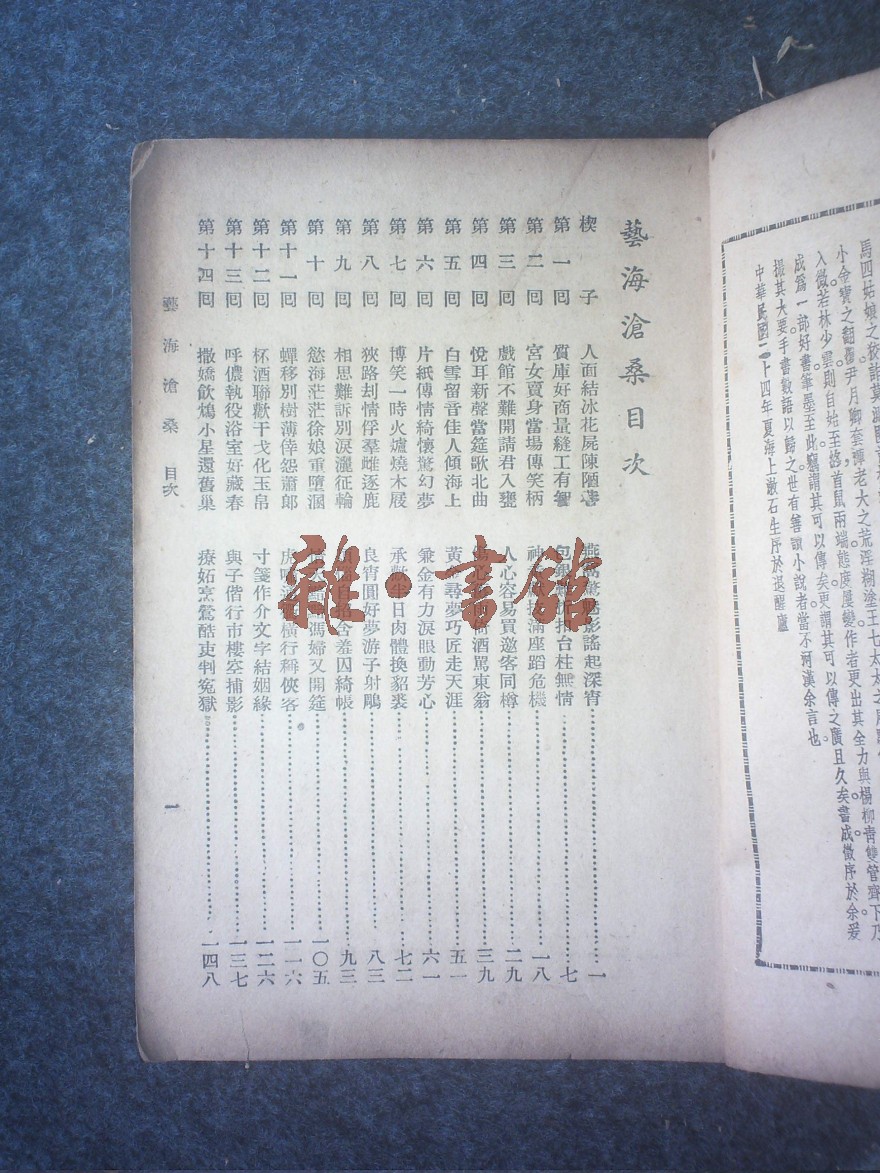 馬四姑娘之狡詐
小金寶之翻覆尹月卿老大之荒淫糊塗王七太太之
入微若林少雲則自始至終首鼠兩端態度屢變作者更出其全力與楊柳青雙管齊下乃
成爲一部好書筆墨至此竊謂其可以傳矣更謂其可以傳之廣且久矣書成徵序於余爰
撮其大要手書數語以歸之世有善讀小說者當不河漢余言也。
中華民國二十四年夏海上漱石生序於退醒廬
藝海滄桑目次
楔子 人面結冰花屍陳陋巷 燕 影謠起深宵 一
第一回 質庫好商量縫工有智 台柱無情 七
第二回 宮女賣身當場傳笑柄 滿座蹈危機 一八
第三回 戲館不難開請君入甕 人心容易買邀客同樽 二九
第四回 悅耳新聲當筵歌北曲 酒罵東翁 三九
第五回 白雪留音佳人傾海上 黃金尋夢巧匠走天涯 五一
第六回 片紙傳情綺懷驚幻夢 兼金有力淚眼動芳心 六一
第七回 博笑一時火爐燒木屐 承歡半日肉體換貂裘 七二
第八回 狹路刦情俘羣雌逐鹿 良宵圓好夢游子射鵰 八三
第九回 相思難訴別淚灑征輪 含羞囚綺帳 九三
第十回 慾海茫茫徐娘重墮溷 馮婦又開筵 一〇五
第十一回 蟬移別樹薄倖怨蕭郎 虎 橫行稱俠客 一一六
第十二回 杯酒聯歡干戈化玉帛 寸箋作介文字結姻緣 一二六
第十三回 呼儂執役浴室好藏春 與子偕行市樓空捕影 一三七
第十四回 撒嬌飲鴆小星還舊巢 療妬烹鶯酷吏判冤獄 一四八
藝海滄桑 目次 一
雜·書館